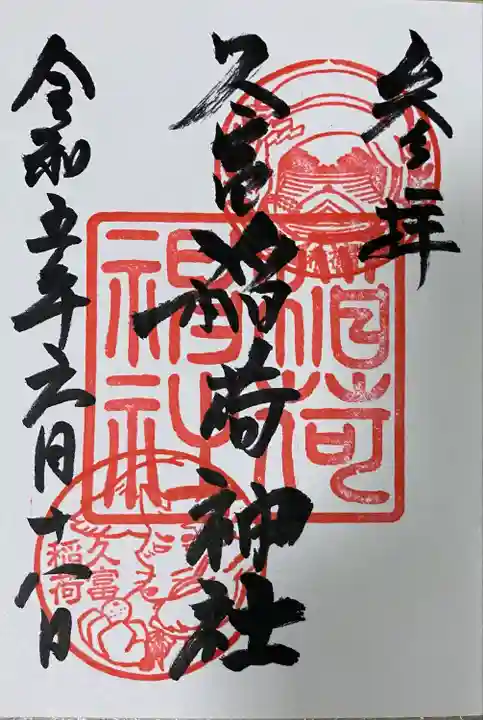 参拝
久富稲荷神社
令和五年六月十八日
稲荷
神社
久富
稲荷